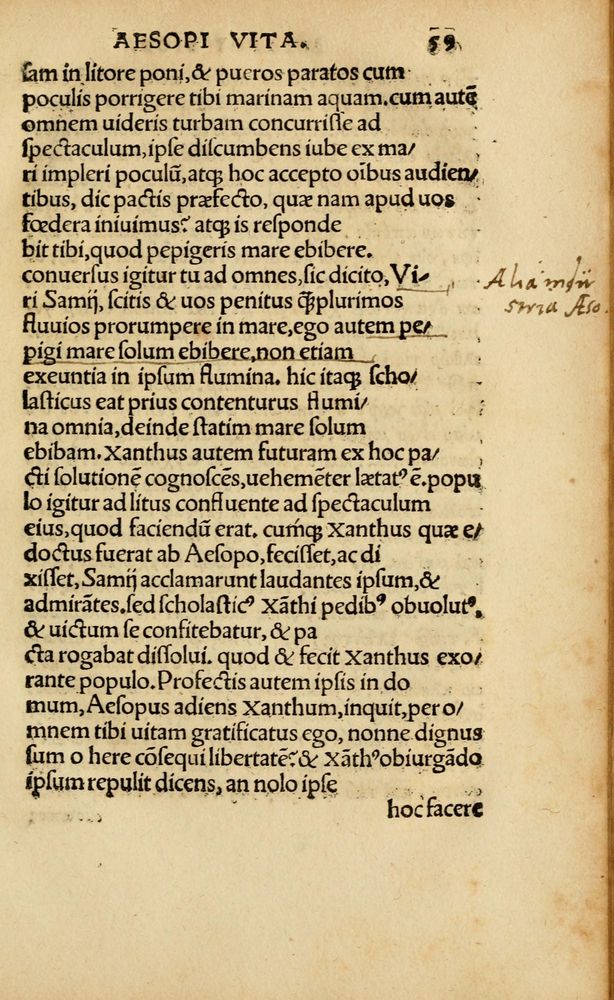 AESOPI VITA. 59
ſam in litore poni, & pueros paratos cum
poculis porrigere tibi marinam aquam. cum autē
omnem uideris turbam concurriſſe ad
ſpectaculum, ipſe diſcumbens iube ex ma/
ri impleri poculū, atqꝫ hoc accepto oībus audien/
tibus, dic pactis præfecto, quæ nam apud uos
fœdera iniuimus? atqꝫ is reſponde
bit tibi, quod pepigeris mare ebibere.
conuerſus igitur tu ad omnes, ſic dicito, Vi/
ri Samij, ſcitis & uos penitus qꝫplurimos
fluuios prorumpere in mare, ego autem pe/
pigi mare ſolum ebibere, non etiam
exeuntia in ipſum flumina. hic itaqꝫ ſcho/
laſticus eat prius contenturus flumi/
na omnia, deinde ſtatim mare ſolum
ebibam. Xanthus autem futuram ex hoc pa/
cti ſolutionē cognoſcēs, uehemēter lætatꝰ ē. popu
lo igitur ad litus confluente ad ſpectaculum
eius, quod faciendū erat. cum̄qꝫ Xanthus quæ e/
doctus fuerat ab Aeſopo, feciſſet, ac di
xiſſet, Samij acclamarunt laudantes ipſum, &
admirātes. ſed ſcholaſticꝰ Xāthi pedibꝰ obuolutꝰ,
& uictum ſe confitebatur, & pa
cta rogabat diſſolui. quod & fecit Xanthus exo/
rante populo. Profectis autem ipſis in do
mum, Aeſopus adiens Xanthum, inquit, per o/
mnem tibi uitam gratificatus ego, nonne dignus
ſum o here cōſequi libertatē? & Xāthꝰ obiurgādo
ipſum repulit dicens, an nolo ipſe
hoc facere
Alia
Æſo.